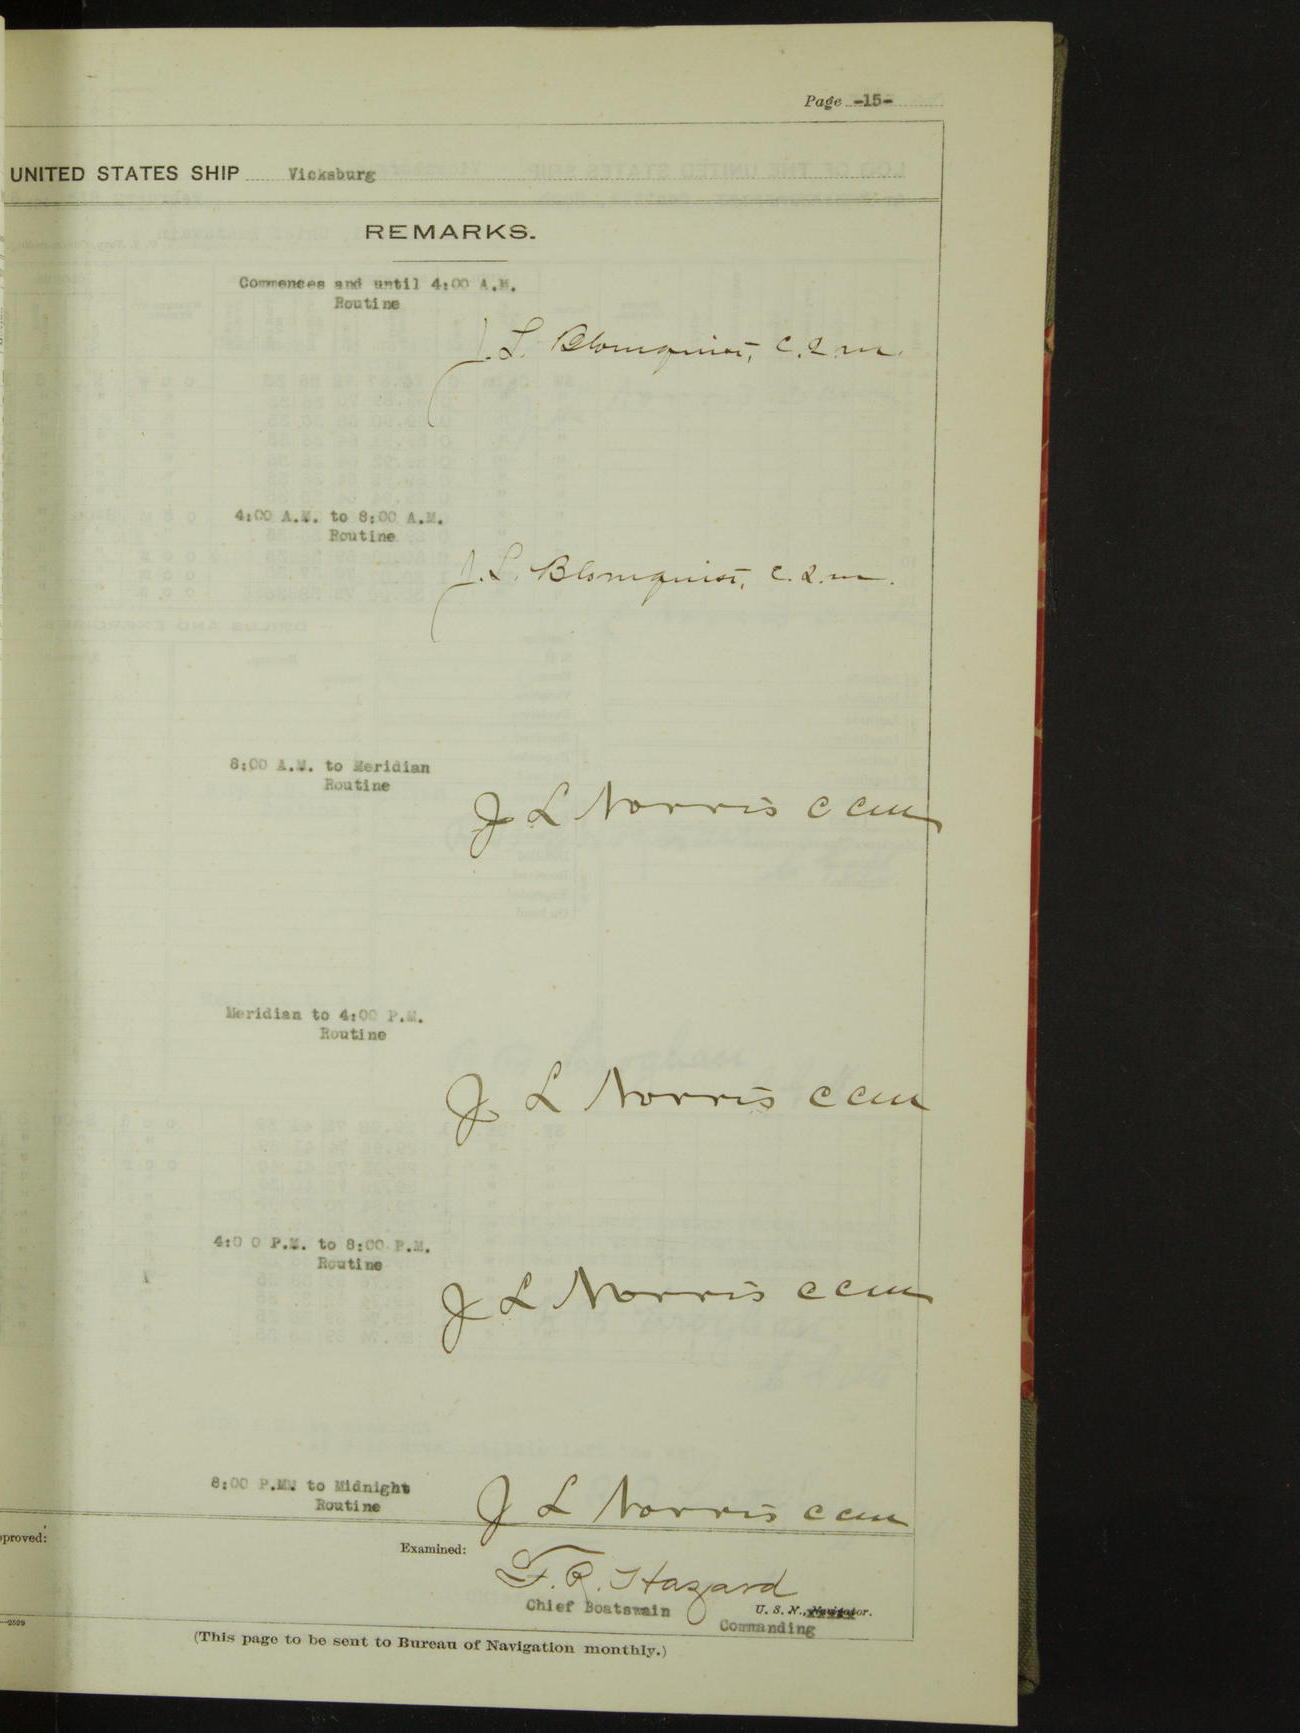 Page -15-
UNITED STATES SHIP Vicksburg
REMARKS.
Commences and until 4:00 A.M.
Routine
J. L. Blomquist, C.Q.M.
4:00 A.M. to 8:00 A.M.
Routine
J. L. Blomquist, C.Q.M.
8:00 A.M. to Meridian
Routine
J L Norris CCM
Meridian to 4:00 P.M.
Routine
J L Norris CCM
4:0 0 P.M. to 8:00 P.M.
Routine
J L Norris CCM
8:00 P.MM to Midnight
Routine
J L Norris CCM
pproved:
Examined:
F. R. Hazard
Chief Boatswain U. S. N., Navigator.
Commanding
—2599
(This page to be sent to Bureau of Navigation monthly.)